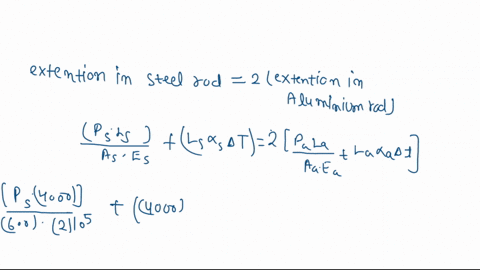 extention in steel rod = 2 (extention in
Aluminium rod)
(Ps.Ls) / As.Es + (Ls αs ΔT) = 2 [PaLa / Aa.Ea + La αa Δt]
[Ps (4000)] / (600).(2)10^5 + ((4000)